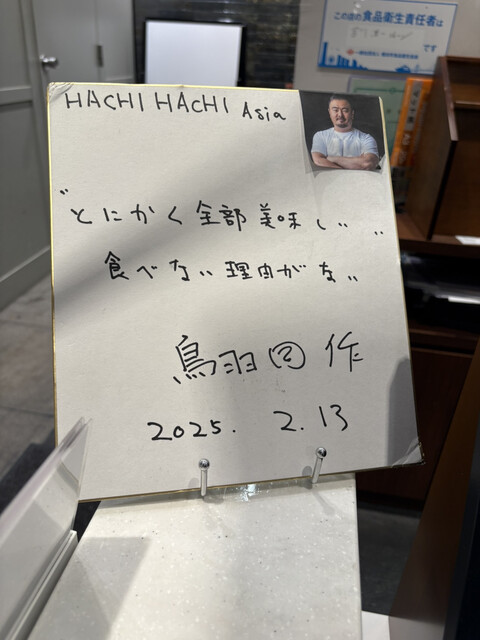 この店の食品衛生責任者は
です
HACHI HACHI Asia
"とにかく全部美味しい"
食べない理由がない
鳥羽周作
2025. 2.13